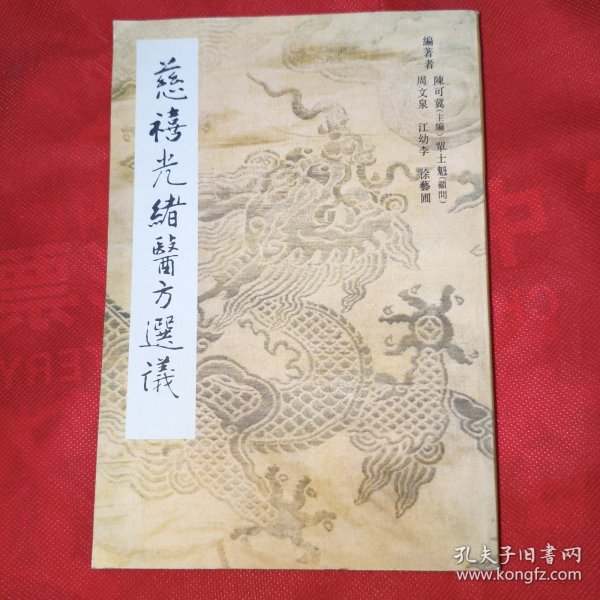 慈禧光緒醫方選議
編著者
陳可冀(主編) 單士魁(顧問)
周文泉 江幼李 徐藝圃
孔夫子旧书网
www.kongfz.com